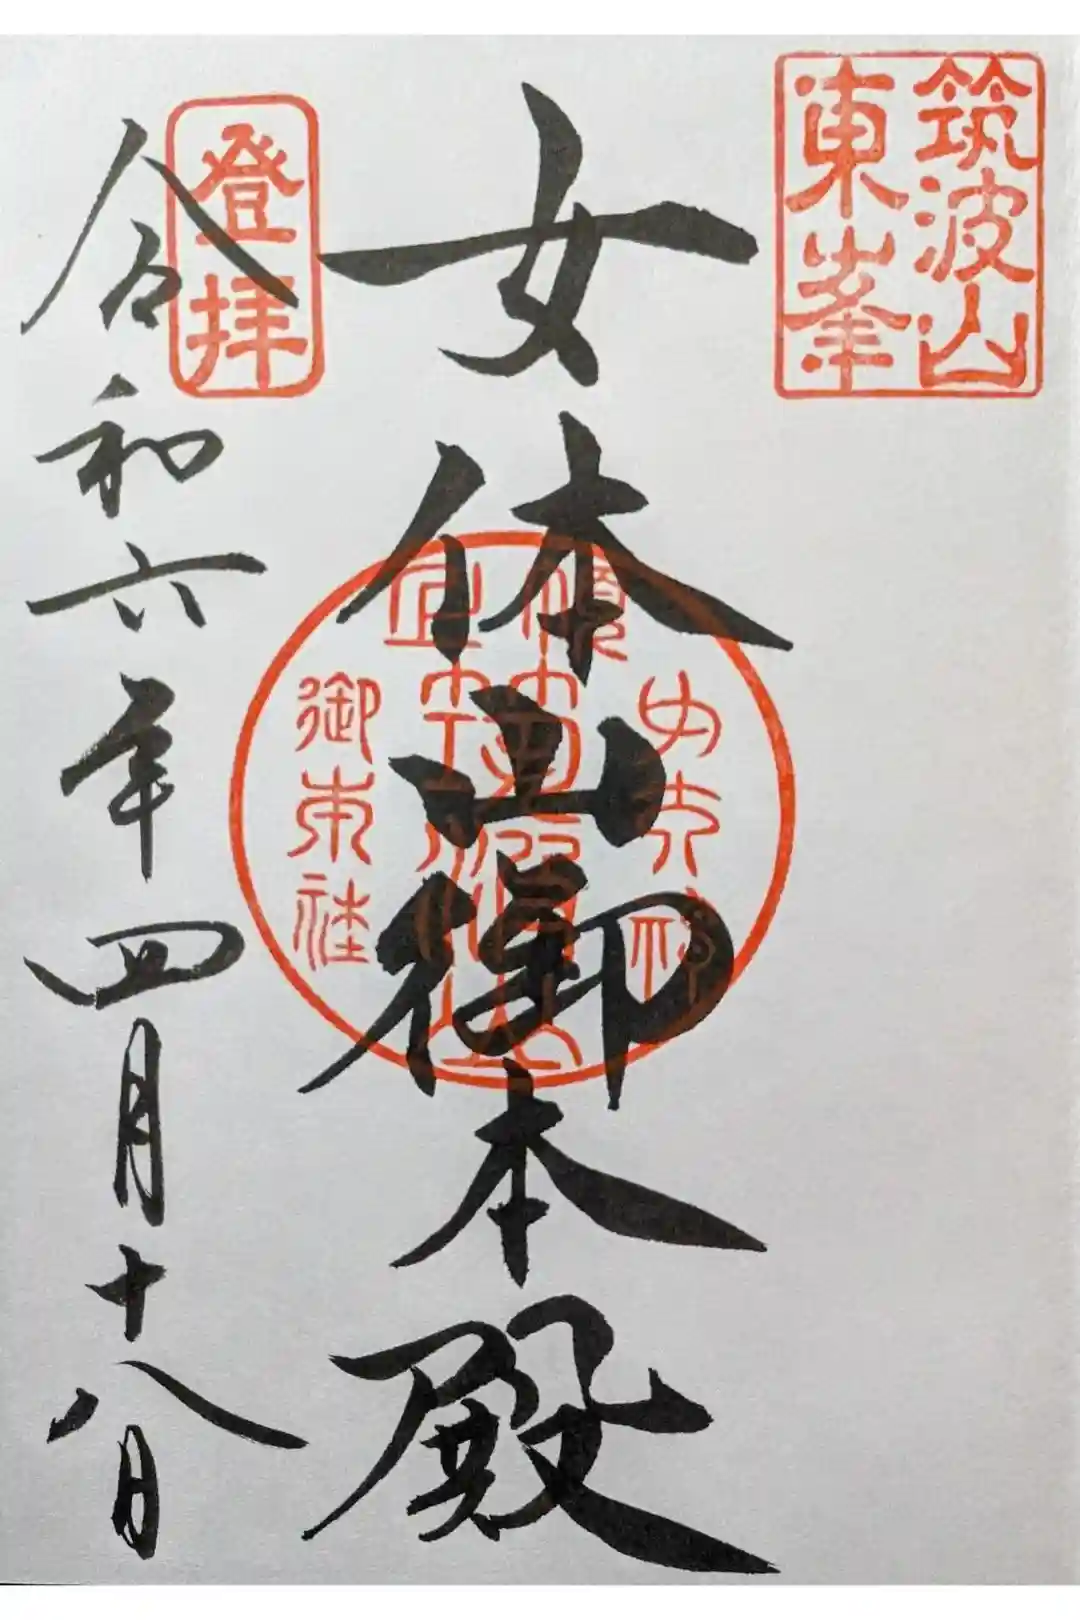 筑波山
東峯
女体山御本殿
御本社
登拝
令和六年四月十八日